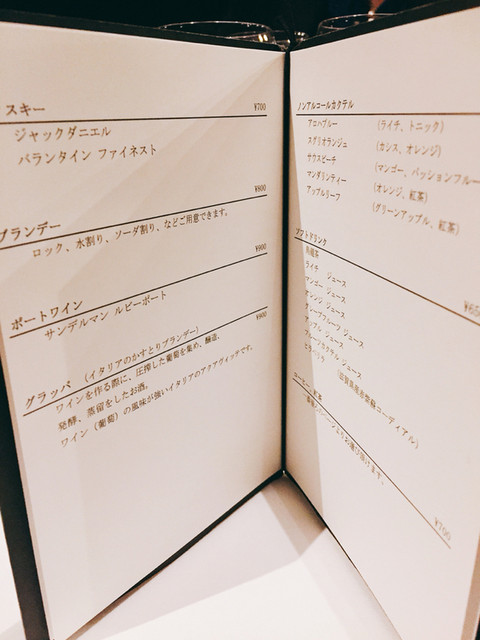 スキー ¥700
ジャックダニエル
バランタイン ファイネスト
ブランデー ¥800
ロック、水割り、ソーダ割り、などご用意できます。
ポートワイン ¥900
サンデルマン ルビーポート
グラッパ (イタリアのかすとりブランデー) ¥900
ワインを作る際に、圧搾した葡萄を集め、醸造、
発酵、蒸留をしたお酒。
ワイン(葡萄)の風味が強いイタリアのアクアヴィッテです。
ノンアルコールカクテル ¥650
アロハブルー (ライチ、トニック)
スグリオランジュ (カシス、オレンジ)
サウスピーチ (マンゴー、パッションフルー
マンダリンティー (オレンジ、紅茶)
アップルリーフ (グリーンアップル、紅茶)
ソフトドリンク
烏龍茶
ライチ ジュース
マンゴー ジュース
オレンジ ジュース
グレープフルーツ ジュース
アップル ジュース
コーディアル)
コーヒー 紅茶 ¥700